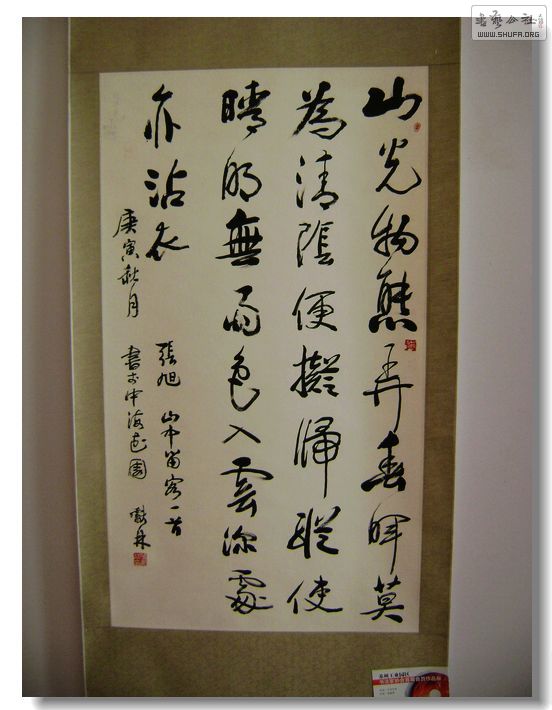 山光物態弄春暉莫
為清陰便擬歸縱使
晴明無雨色入雲深處
亦沾衣
張旭 山中留客一首
庚寅秋月 書於中海花園
書藝公社
WWW.SHUFA.ORG